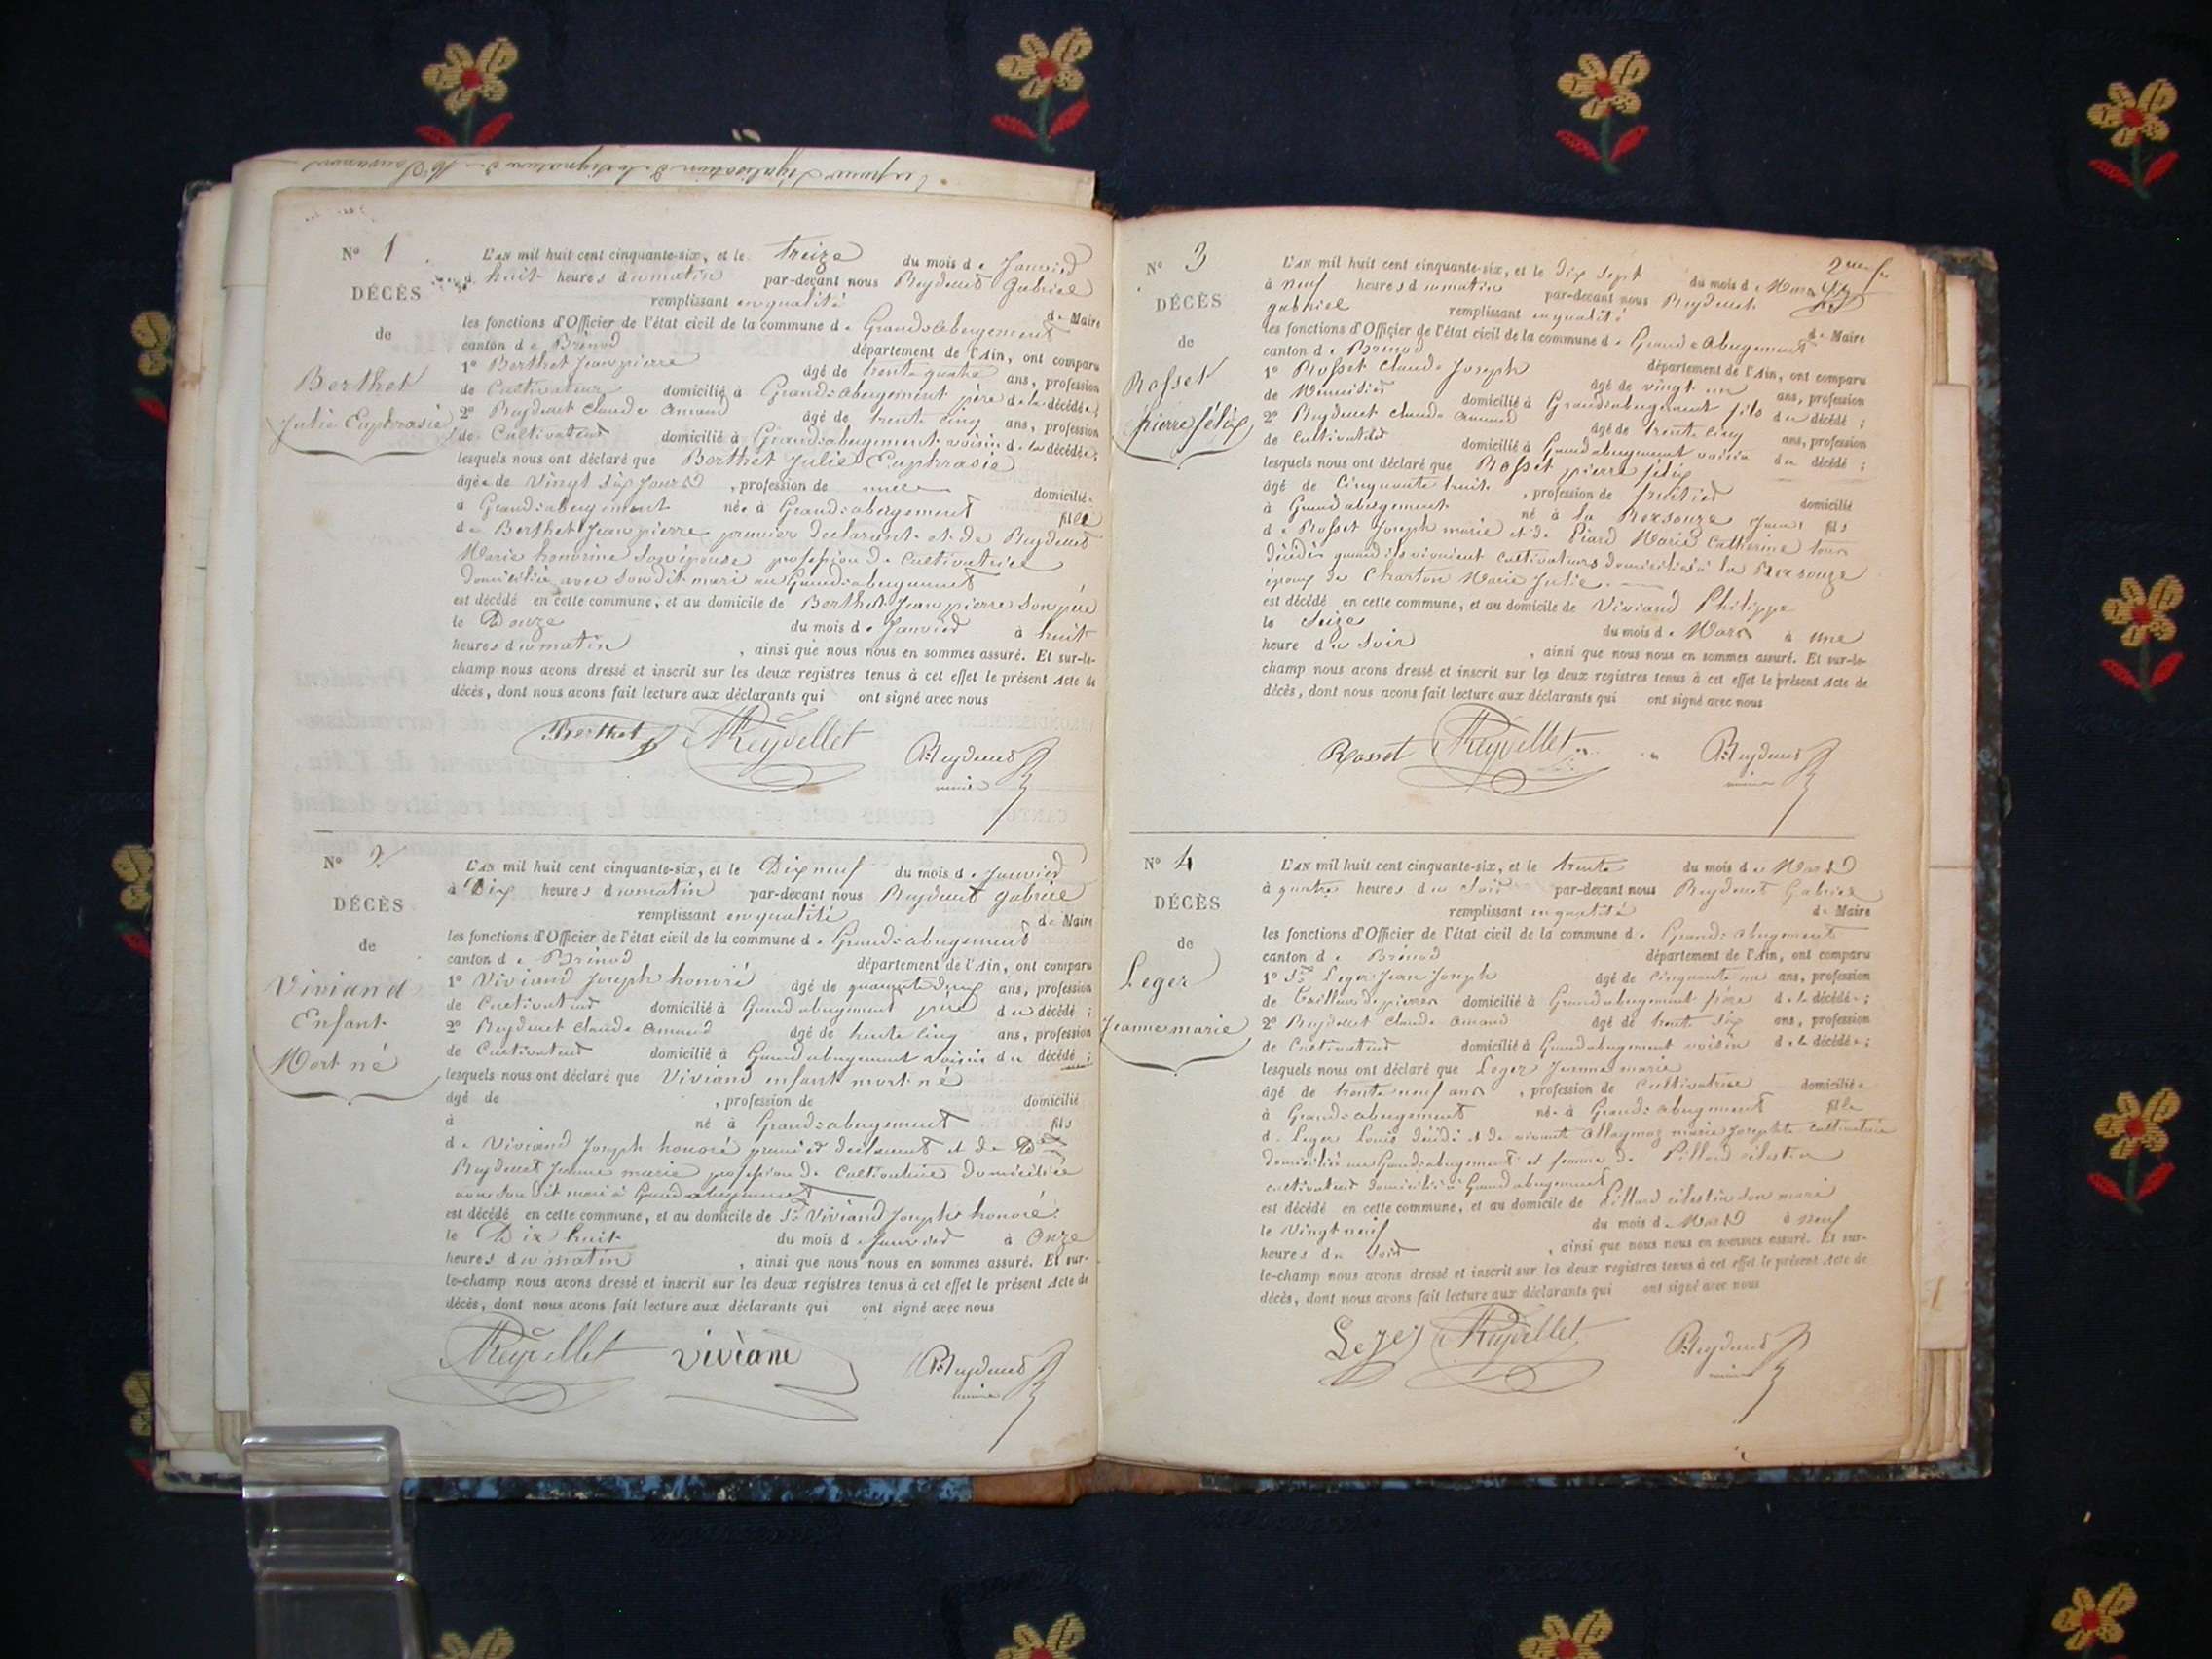 légalisation de la signature de M.
N° 1
DÉCÈS
de
Berthet
Julie Euphrasie
L'AN mil huit cent cinquante-six, et le treize du mois de Janvier
à huit heures du matin par-devant nous Reydellet Gabriel
remplissant en qualité de Maire
les fonctions d'Officier de l'état civil de la commune de Grand-abergement
canton de Brénod département de l'Ain, ont comparu
1° Berthet Jean pierre âgé de trente quatre ans, profession
de Cultivateur domicilié à Grand-abergement père de la décédée;
2° Reydellet Claude Amand âgé de trente cinq ans, profession
de Cultivateur domicilié à Grand-abergement voisin de la décédée;
lesquels nous ont déclaré que Berthet Julie Euphrasie
âgée de Vingt six jours, profession de domiciliée
à Grand-abergement née à Grand-abergement fille
de Berthet Jean pierre premier déclarant et de Reydellet
Marie honorine son épouse profession de Cultivatrice
domiciliée avec son dit mari au Grand-abergement
est décédé en cette commune, et au domicile de Berthet Jean pierre son père
le Douze du mois de Janvier à huit
heures du matin, ainsi que nous nous en sommes assuré. Et sur-le-
champ nous avons dressé et inscrit sur les deux registres tenus à cet effet le présent Acte de
décès, dont nous avons fait lecture aux déclarants qui ont signé avec nous
Berthet Reydellet Reydellet
maire
N° 2
DÉCÈS
de
Viviand
Enfant
Mort né
L'AN mil huit cent cinquante-six, et le Dix neuf du mois de Janvier
à Dix heures du matin par-devant nous Reydellet gabriel
remplissant en qualité de Maire
les fonctions d'Officier de l'état civil de la commune de Grand-abergement
canton de Brénod département de l'Ain, ont comparu
1° Viviand Joseph honoré âgé de quarante deux ans, profession
de Cultivateur domicilié à Grand abergement père du décédé;
2° Reydellet Claude Amand âgé de trente cinq ans, profession
de Cultivateur domicilié à Grand abergement voisin du décédé;
lesquels nous ont déclaré que Viviand enfant mort né
âgé de , profession de domicilié
à né à Grand-abergement fils
de Viviand Joseph honoré premier déclarant et de
Reydellet Jeanne marie profession de Cultivatrice domiciliée
avec son dit mari à Grand abergement
est décédé en cette commune, et au domicile de Sr Viviand Joseph honoré
le Dix huit du mois de Janvier à Onze
heures du matin, ainsi que nous nous en sommes assuré. Et sur-
le-champ nous avons dressé et inscrit sur les deux registres tenus à cet effet le présent Acte de
décès, dont nous avons fait lecture aux déclarants qui ont signé avec nous
Reydellet viviane Reydellet
maire
N° 3
DÉCÈS
de
Rosset
pierre félix
L'AN mil huit cent cinquante-six, et le dix sept du mois de Mars
à neuf heures du matin par-devant nous Reydellet
gabriel remplissant en qualité de Maire
les fonctions d'Officier de l'état civil de la commune de Grand Abergement
canton de Brénod département de l'Ain, ont comparu
1° Rosset Claude Joseph âgé de vingt un ans, profession
de Menuisier domicilié à Grand-abergement fils du décédé;
2° Reydellet Claude Amand âgé de trente cinq ans, profession
de Cultivateur domicilié à Grand abergement voisin du décédé;
lesquels nous ont déclaré que Rosset pierre félix
âgé de Cinquante huit, profession de fruitier domicilié
à Grand abergement né à la Rixouze Jura fils
de Rosset Joseph marie et de Piard Marie Catherine tous
décédés quand ils vivaient cultivateurs domiciliés à la Rixouze
époux de Charton Marie Julie
est décédé en cette commune, et au domicile de Viviand Philippe
le Seize du mois de Mars à une
heure du Soir, ainsi que nous nous en sommes assuré. Et sur-le-
champ nous avons dressé et inscrit sur les deux registres tenus à cet effet le présent Acte de
décès, dont nous avons fait lecture aux déclarants qui ont signé avec nous
Rosset Reydellet Reydellet
maire
N° 4
DÉCÈS
de
Leger
Jeanne marie
L'AN mil huit cent cinquante-six, et le trente du mois de Mars
à quatre heures du Soir par-devant nous Reydellet Gabriel
remplissant en qualité de Maire
les fonctions d'Officier de l'état civil de la commune de Grand-abergement
canton de Brénod département de l'Ain, ont comparu
1° Sr Leger Jean Joseph âgé de cinquante un ans, profession
de Tailleur de pierres domicilié à Grand abergement frère de la décédée;
2° Reydellet Claude Amand âgé de trente six ans, profession
de Cultivateur domicilié à Grand abergement voisin de la décédée;
lesquels nous ont déclaré que Leger Jeanne marie
âgé de trente neuf ans, profession de Cultivatrice domiciliée
à Grand-abergement née à Grand-abergement fille
de Leger Louis décédé et de vivante marie Josephte cultivatrice
domiciliée au Grand-abergement et femme de Pillard célestin
cultivateur domicilié à Grand abergement
est décédé en cette commune, et au domicile de Pillard célestin son mari
le Vingt neuf du mois de Mars à neuf
heures du Soir, ainsi que nous nous en sommes assuré. Et sur-
le-champ nous avons dressé et inscrit sur les deux registres tenus à cet effet le présent Acte de
décès, dont nous avons fait lecture aux déclarants qui ont signé avec nous
Leger Reydellet Reydellet
maire